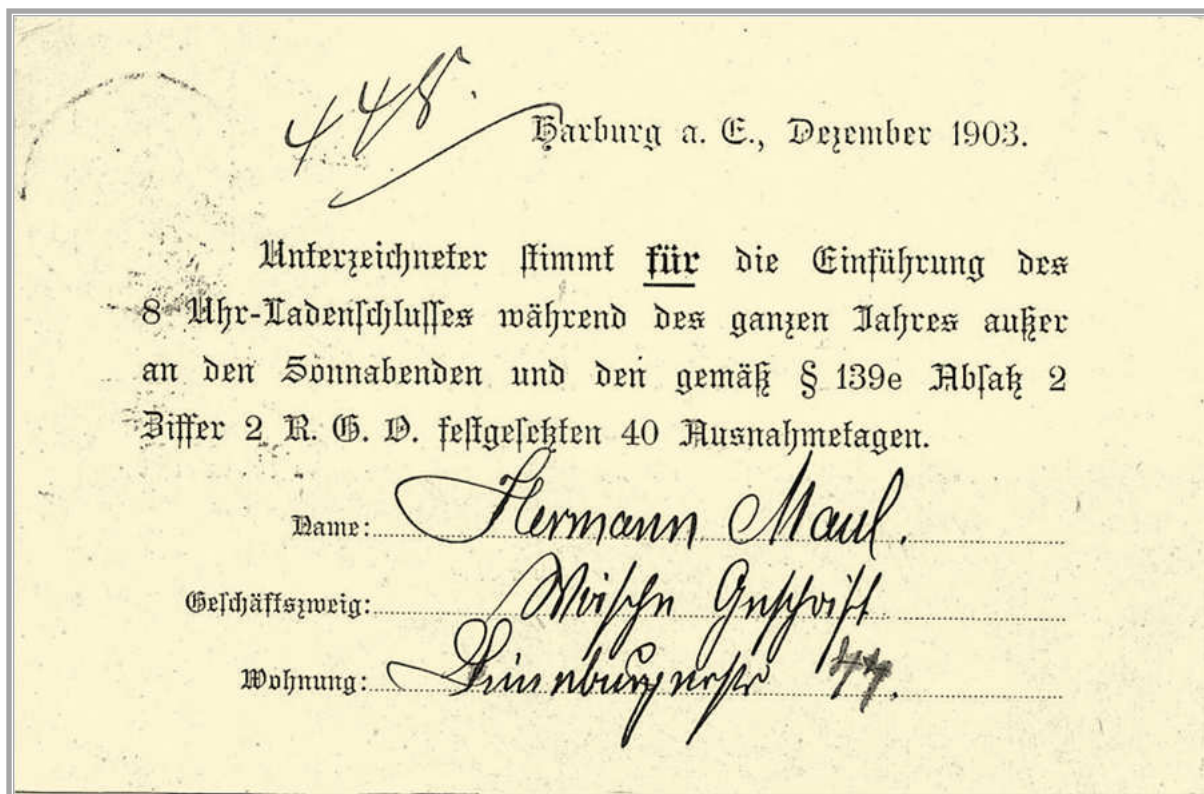 448.
Harburg a. E., Dezember 1903.
Unterzeichneter stimmt für die Einführung des
8 Uhr-Ladenschlusses während des ganzen Jahres außer
an den Sonnabenden und den gemäß § 139e Absatz 2
Ziffer 2 R. G. O. festgesetzten 40 Ausnahmetagen.
Name: Hermann Maul.
Geschäftszweig: Wäsche Geschäft
Wohnung: Lüneburgerstr 44.